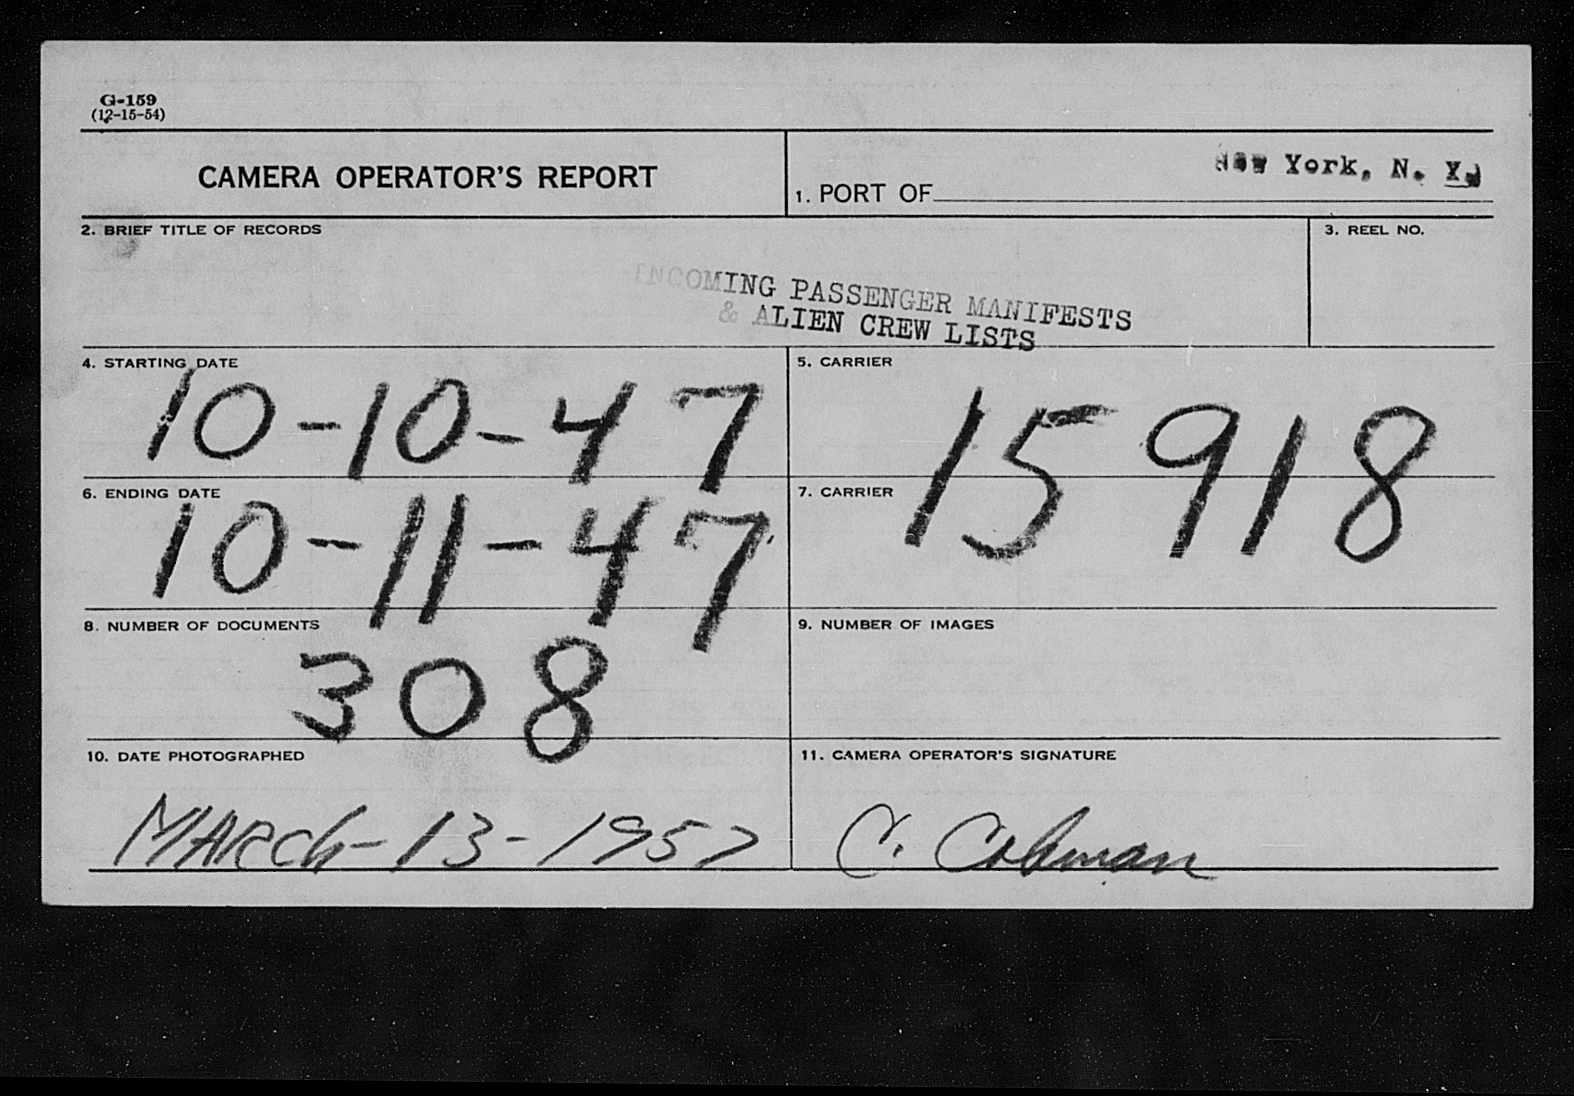 G-159
(12-15-54)
CAMERA OPERATOR'S REPORT
1. PORT OF New York, N. Y.
2. BRIEF TITLE OF RECORDS
3. REEL NO.
INCOMING PASSENGER MANIFESTS
& ALIEN CREW LISTS
4. STARTING DATE
10-10-47
5. CARRIER
15918
6. ENDING DATE
10-11-47
7. CARRIER
8. NUMBER OF DOCUMENTS
308
9. NUMBER OF IMAGES
10. DATE PHOTOGRAPHED
MARCH-13-1957
11. CAMERA OPERATOR'S SIGNATURE
C. Coleman